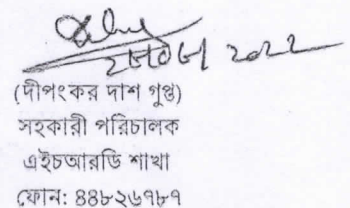 (দীপংকর দাশ গুপ্ত)
সহকারী পরিচালক
এইচআরডি শাখা
ফোন: ৪৪৮২৬৭৮৭